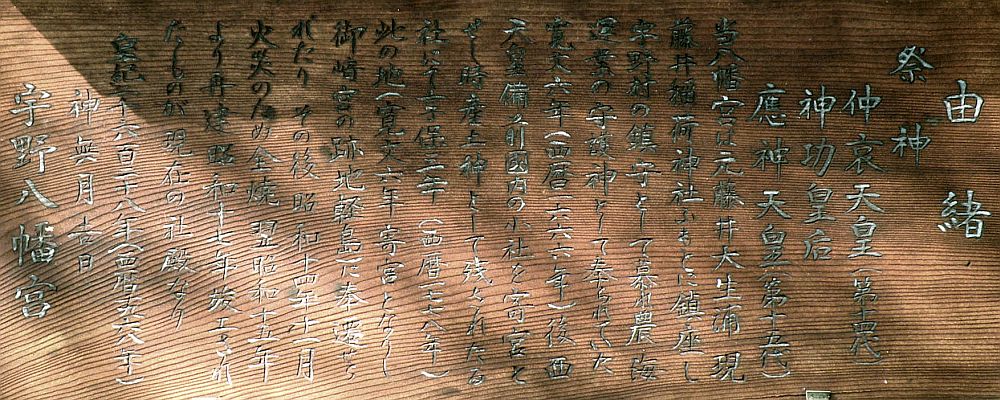 由緒
祭神
仲哀天皇(第十四代)
神功皇后
應神天皇(第十五代)
当八幡宮は元藤井大生浦現
藤井稲荷神社ふもとに鎮座し
宇野村の鎮守として慕れ農海
運業の守護神として奉られていた
寛文六年(西暦一六六六年)後西
天皇備前国内の小社を寄宮と
せし時産土神として残されたる
社にして享保三年(西暦一七一八年)
此の地(寛文六年寄宮となりし
御崎宮の跡地軽島)に奉遷せら
れたり その後昭和十四年十二月
火災のため全焼 翌昭和十五年
より再建昭和十七年竣工され
たものが現在の社殿なり
皇紀二千六百二十八年(西暦一九六八年)
神無月吉日
宇野八幡宮